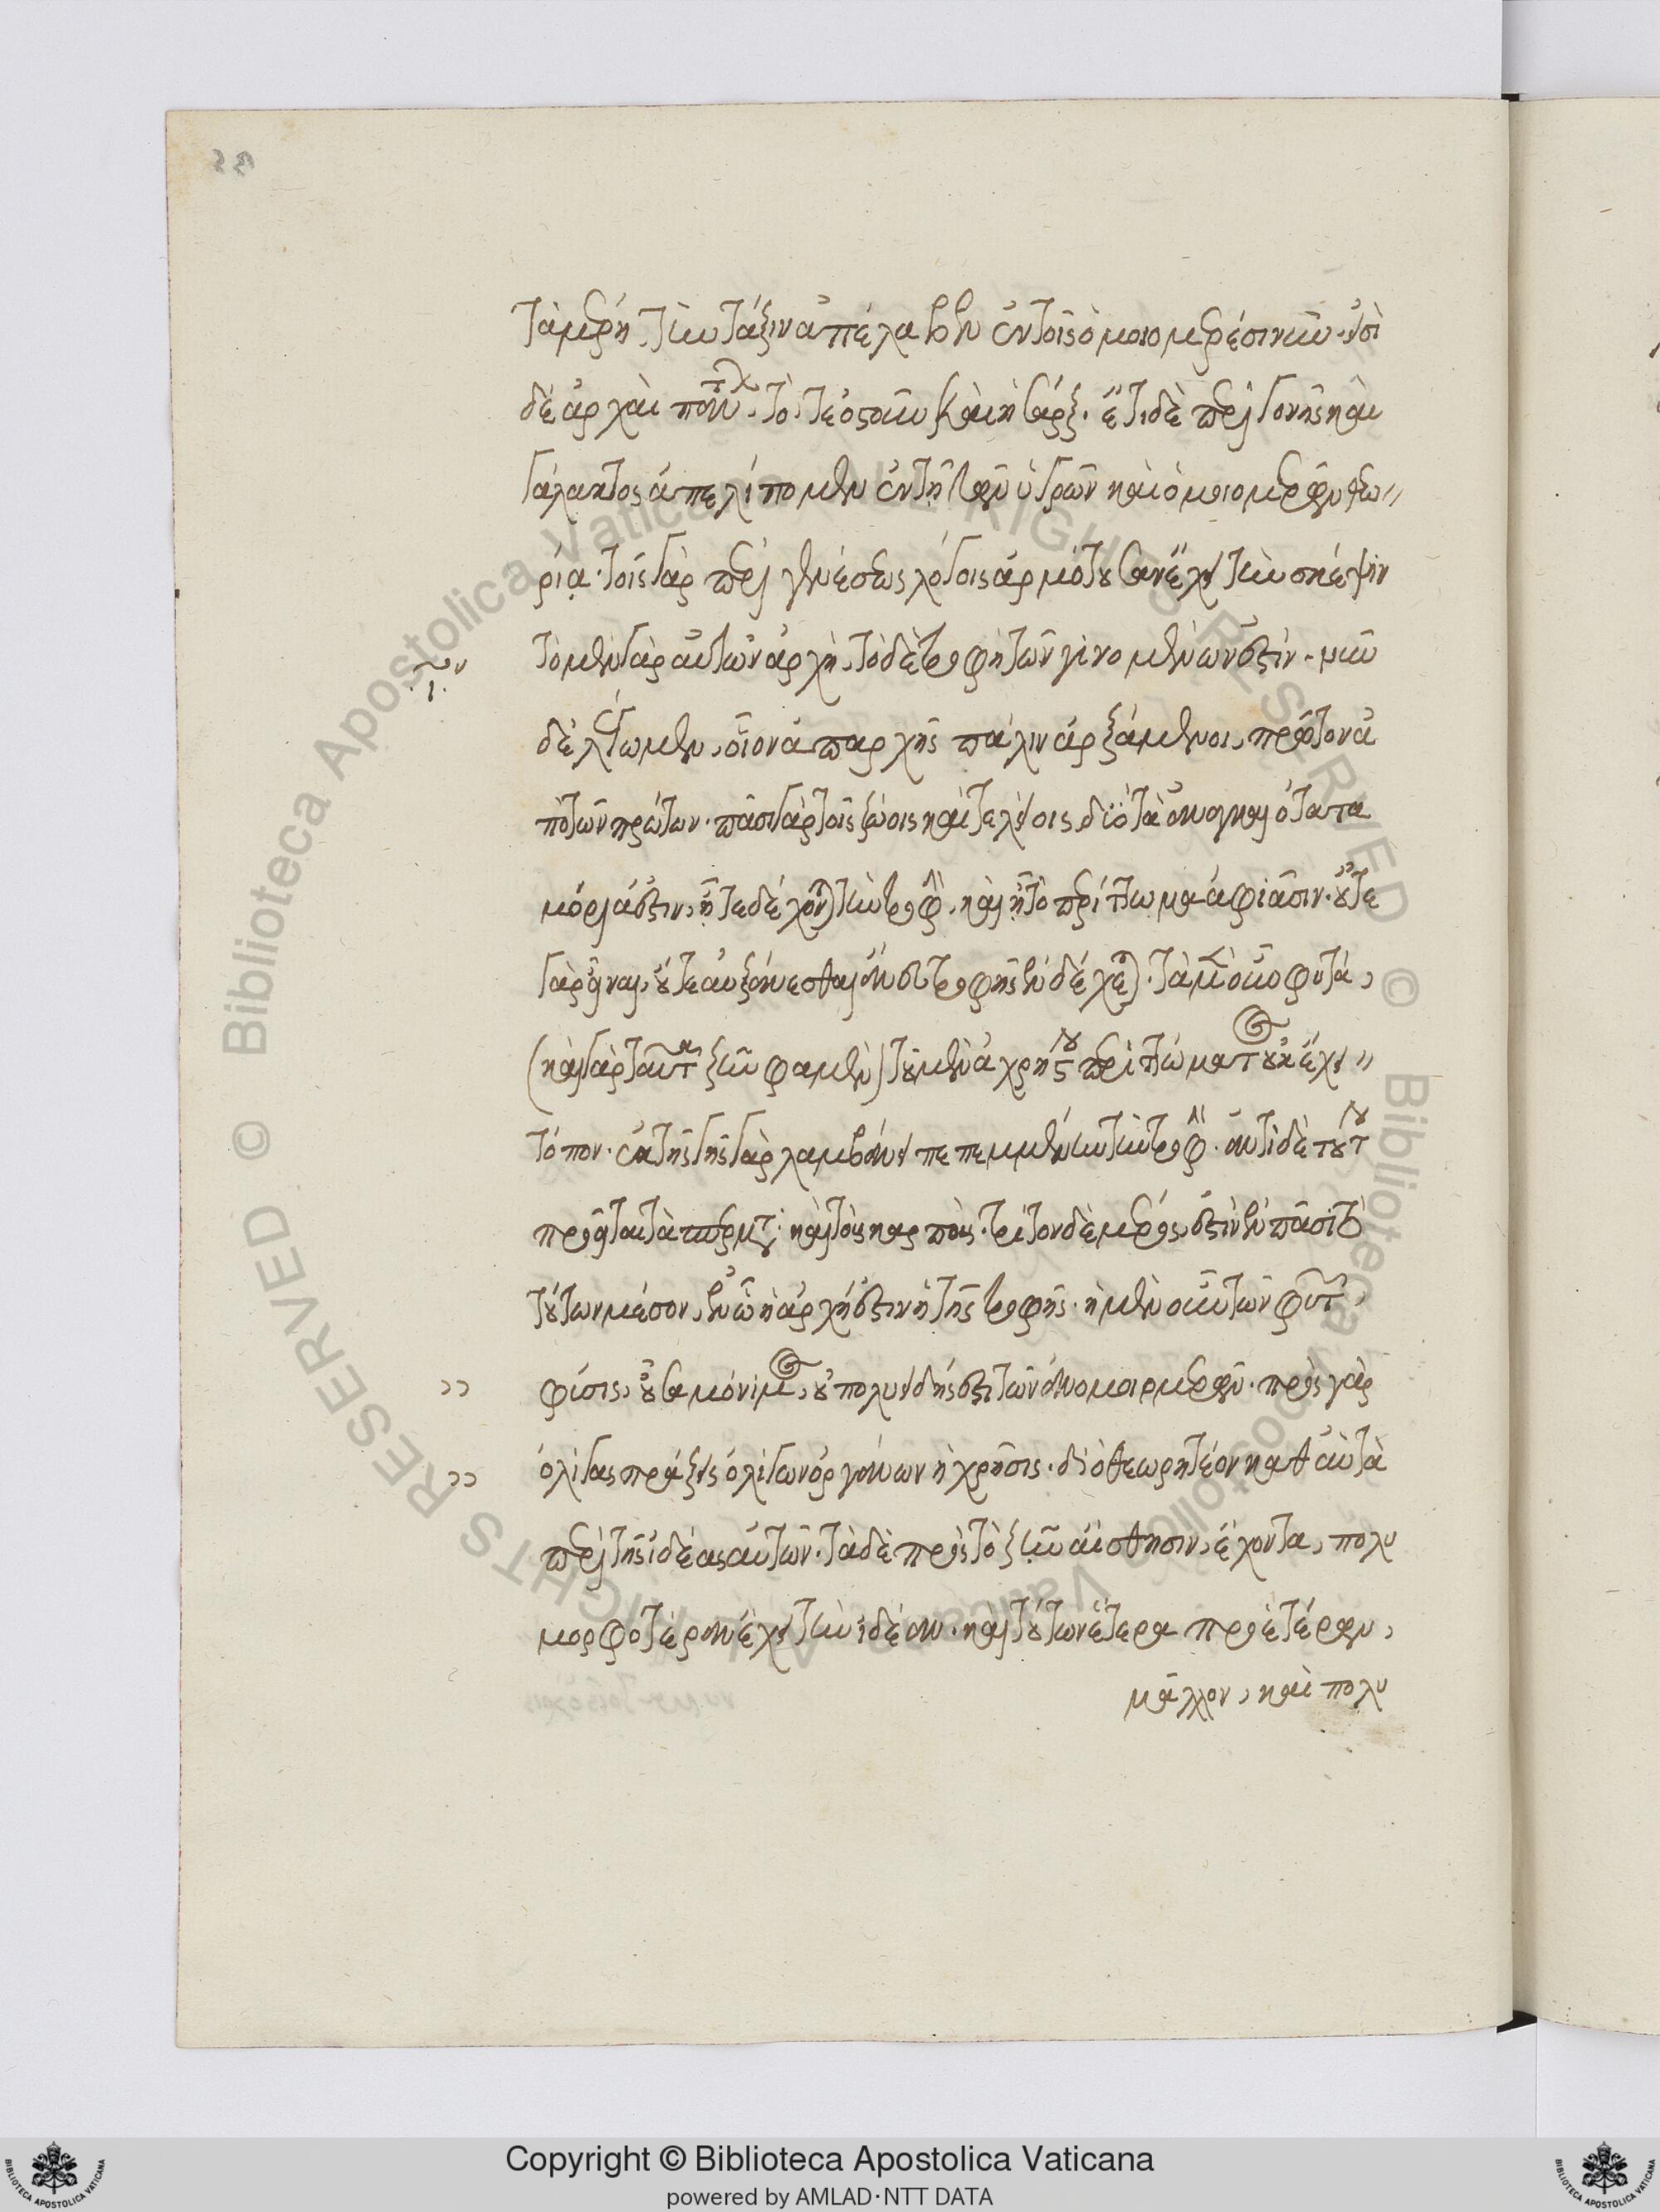 τὰ μέρη, τὴν τάξιν ἀπέλαβεν ἐν τοῖς ὁμοιομερέσιν ἡμῖν. εἰσὶ
δὲ ἀρχαὶ τό τε ὀστοῦν καὶ ἡ σάρξ. ἔτι δὲ περὶ γονῆς καὶ
γάλακτος ἀπελίπομεν ἐν τῇ τῶν ὑγρῶν καὶ ὁμοιομερῶν θεω
ρία. τοῖς γὰρ περὶ γενέσεως λόγοις ἁρμόττουσαν ἔχει τὴν σκέψιν
τὸ μὲν γὰρ αὐτῶν ἀρχὴ, τὸ δὲ τροφὴ τῶν γινομένων ἐστίν. νῦν
δὲ λέγωμεν, οἷον ἀπαρχῆς πάλιν ἀρξάμενοι, πρῶτον ἀ
πὸ τῶν πρώτων. πᾶσι γὰρ τοῖς ζώοις καὶ τελείοις δύο τὰ ἀναγκαιότατα
μόριά ἐστιν, ᾗ τε δέχονται τὴν τροφὴν, καὶ ᾗ τὸ περίττωμα ἀφιᾶσιν. οὔτε
γὰρ εἶναι, οὔτε αὐξάνεσθαι ἄνευ τροφῆς ἐνδέχεται. τὰ μὲν οὖν φυτά,
(καὶ γὰρ ταῦτα ζῆν φαμὲν) τοῦ μὲν ἀχρήστου περιττώματος οὐκ ἔχει
τόπον. ἐκ τῆς γῆς γὰρ λαμβάνει πεπεμμένην τὴν τροφὴν. ἀντὶ δὲ τούτου
προΐεται τὰ σπέρματα καὶ τοὺς καρπούς. τρίτον δὲ μέρος, ἐστὶν ἐν πᾶσι τὸ
τούτων μέσον, ἐν ᾧ ἡ ἀρχή ἐστιν ἡ τῆς τροφῆς. ἡ μὲν οὖν τῶν φυτῶν,
φύσις, οὖσα μόνιμος, οὐ πολυειδής ἐστι τῶν ἀνομοιομερῶν. πρὸς γὰρ
ὀλίγας πράξεις ὀλίγων ὀργάνων ἡ χρῆσις. διὸ θεωρητέον καθ αὑτὰ
περὶ τῆς ἰδέας αὐτῶν. τὰ δὲ πρὸς τὸ ζῆν αἴσθησιν, ἔχοντα, πολυ
μορφοτέραν ἔχει τὴν ἰδέαν. καὶ τούτων ἕτερα πρὸ ἑτέρων,
μᾶλλον, καὶ πολυ
Copyright © Biblioteca Apostolica Vaticana
powered by AMLAD·NTT DATA